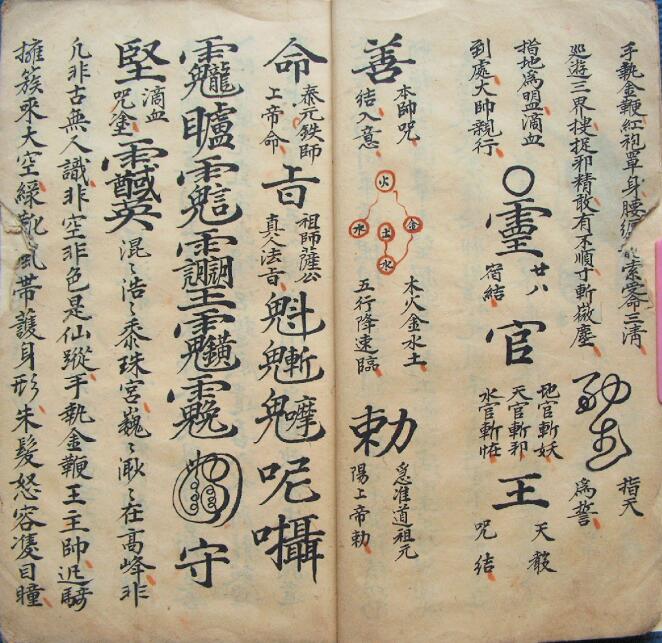 手執金鞭紅袍罩身腰纏索受命三清
巡遊三界捉邪精敢有不順寸斬微塵
指天
為誓
指地為盟滴血
到處大帥親行
〇靈
廿八
宿結
官
地官斬妖
天官斬邪
水官斬怪
王
天殺
咒結
善
本帥咒
結入意
火
水
土
金
水
木火金水土
五行降速臨
勅
急准道祖元
陽上帝勅
命
泰元鉄師
上帝命
旨
祖師薩公
真人法旨
魁
呢囁
守
堅
滴血
咒塗
英
混〻浩〻泰珠宮巍〻〻在高峰非
凡非古無人識非空非色是仙蹤手執金鞭王主帥迅騎
擁簇来大空綠靴風帶護身形朱髮怒容雙目瞳